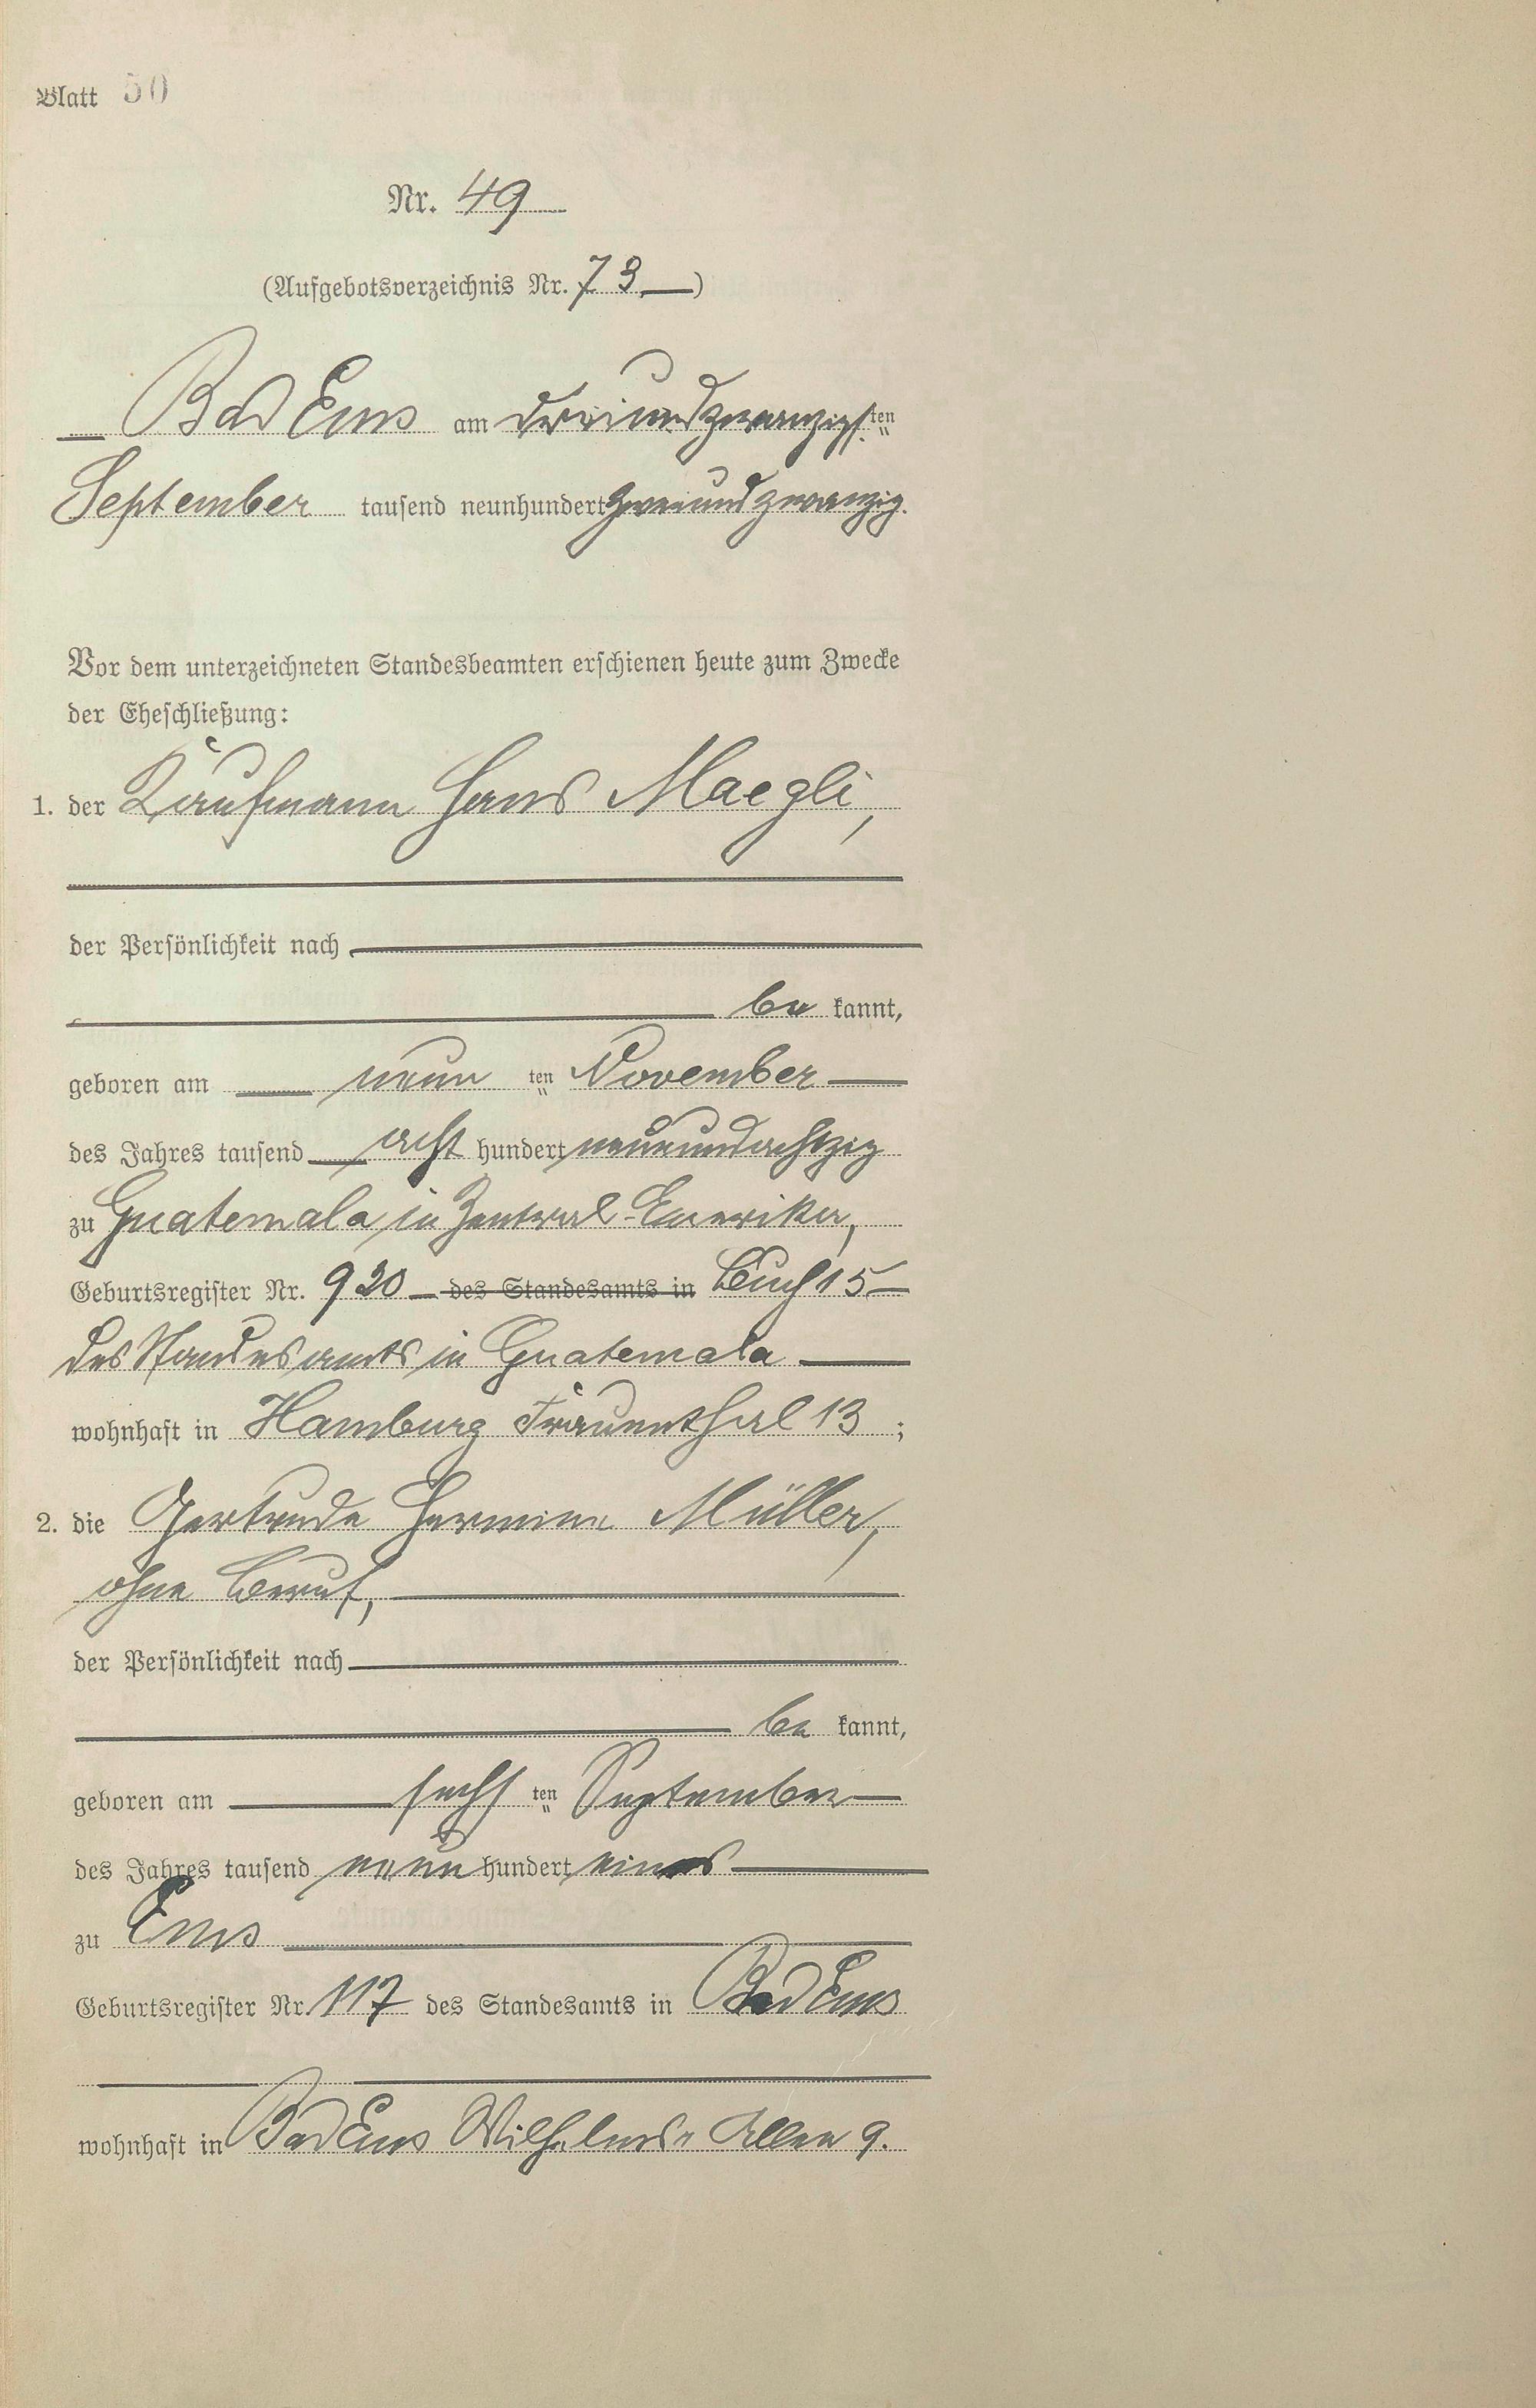 Blatt 50
Nr. 49
(Aufgebotsverzeichnis Nr. 73)
Bad Ems am dreiundzwanzigsten
September tausend neunhundert zweiundzwanzig.
Vor dem unterzeichneten Standesbeamten erschienen heute zum Zwecke
der Eheschließung:
1. der Kaufmann Hans Maegli,
der Persönlichkeit nach
be kannt,
geboren am neun ten November
des Jahres tausend acht hundert neunundachtzig
zu Guatemala in Zentral-Amerika,
Geburtsregister Nr. 920 des Standesamts in Buch 15
des Standesamts in Guatemala
wohnhaft in Hamburg Frauenthal 13;
2. die Gertrude Hermine Müller,
ohne Beruf,
der Persönlichkeit nach
be kannt,
geboren am sechs ten September
des Jahres tausend neun hundert eins
zu Ems
Geburtsregister Nr. 117 des Standesamts in Bad Ems
wohnhaft in Bad Ems Wilhelms-Allee 9.